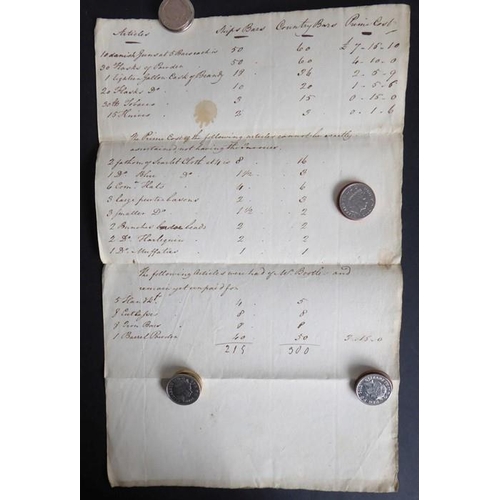 Articles Ships Bars Country Bars Prime Cost
10 danish Guns at 5 Bars each is 50 60 £7-15-10
30 Flasks of Powder 50 60 4-10-0
1 Gallon Cask of Brandy 18 36 2-5-9
20 Flasks Do 10 20 1-5-6
30 lb Tobacco 3 15 0-15-0
15 Knives 2 3 0-1-6
The Prime Cost of the following articles cannot be exactly
ascertained not having the Invoices
2 fathom of Scarlet Cloth at 4 is 8 16
1 Do Blue Do 1 1/2 3
6 Comn Hats 4 6
3 large pewter basons 2 3
3 smaller Do 1 1/2 2
2 Bunches beads 2 2
2 Do Harlequin 2 2
1 Do 1 1
The following Articles were had of Wm and
remain yet unpaid for
5 4 5
8 Cutlasses 8 8
9 Iron Bars 8 8
1 Barrel Powder 40 50
215 300